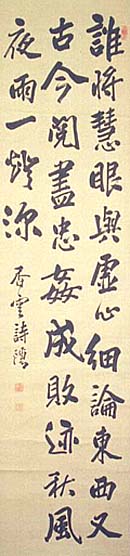 誰將慧眼與虛心細論東西又
古今閲盡忠姦成敗迹秋風
夜雨一燈深
雲詩